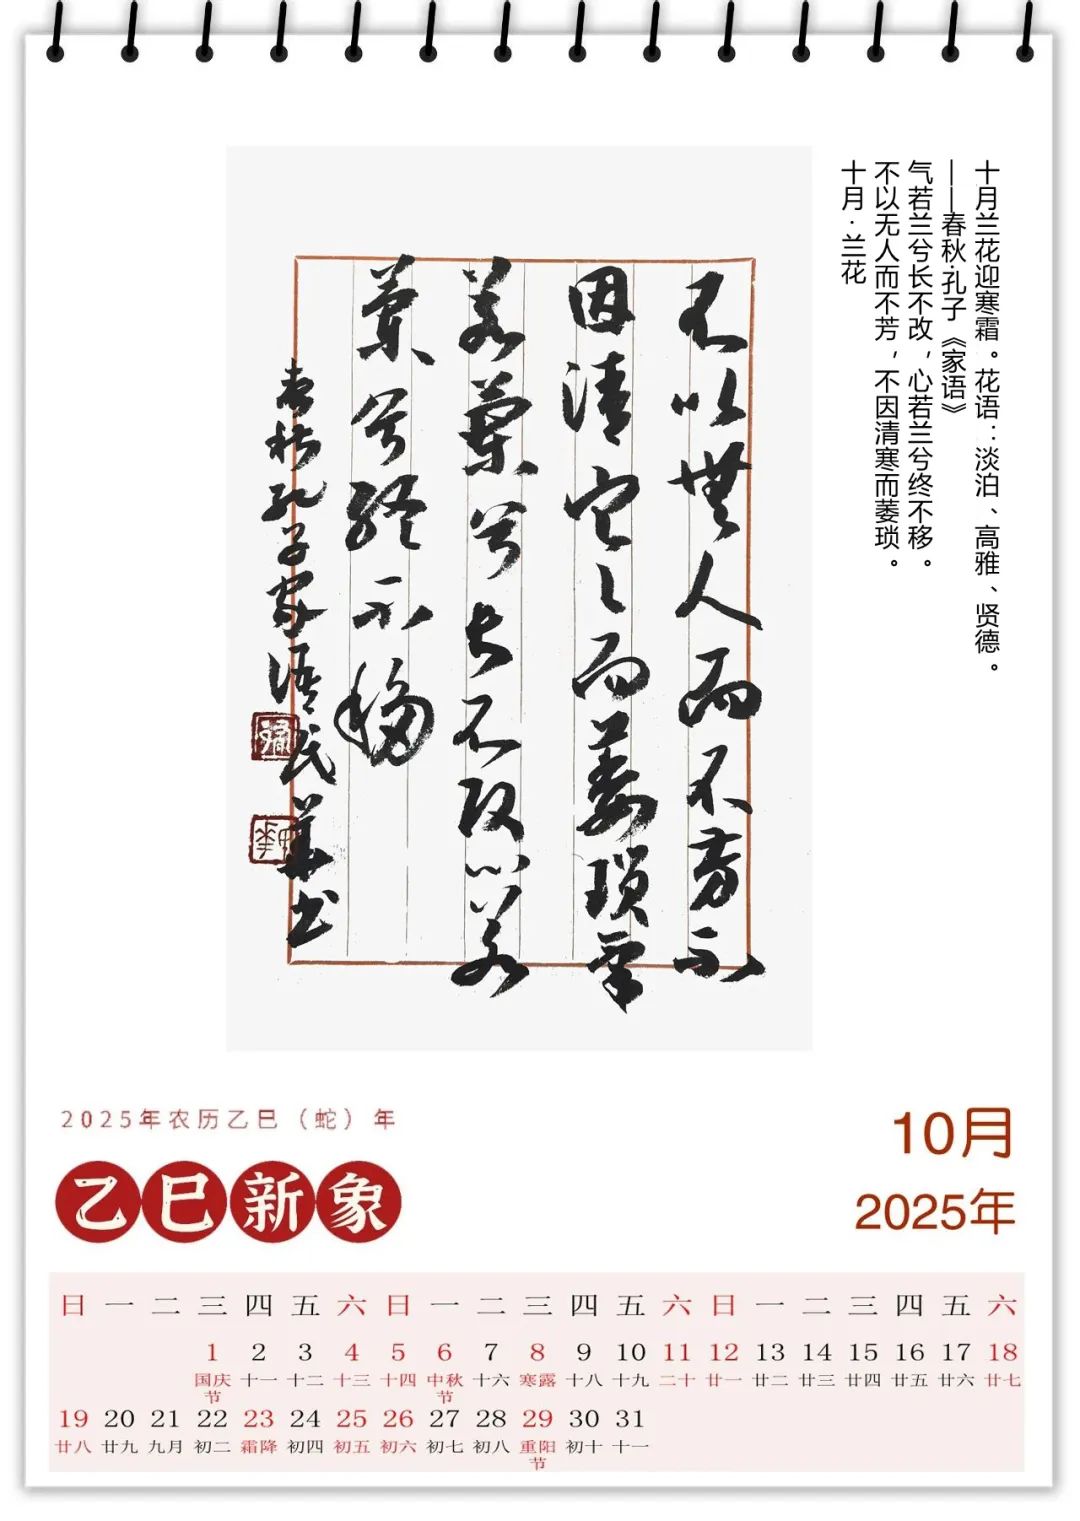 不以無人而不芳不
因清寒而萎琐氣
若蘭兮长不改心若
蘭兮终不移
春秋孔子家语 民華书
十月兰花迎寒霜。花语：淡泊、高雅、贤德。
——春秋·孔子《家语》
气若兰兮长不改，心若兰兮终不移。
不以无人而不芳，不因清寒而萎琐。
十月·兰花
2025年农历乙巳（蛇）年
乙巳新象
10月
2025年
日 一 二 三 四 五 六 日 一 二 三 四 五 六 日 一 二 三 四 五 六
1 2 3 4 5 6 7 8 9 10 11 12 13 14 15 16 17 18
国庆节 十一 十二 十三 十四 中秋节 十六 寒露 十八 十九 二十 廿一 廿二 廿三 廿四 廿五 廿六 廿七
19 20 21 22 23 24 25 26 27 28 29 30 31
廿八 廿九 九月 初二 霜降 初四 初五 初六 初七 初八 重阳节 初十 十一